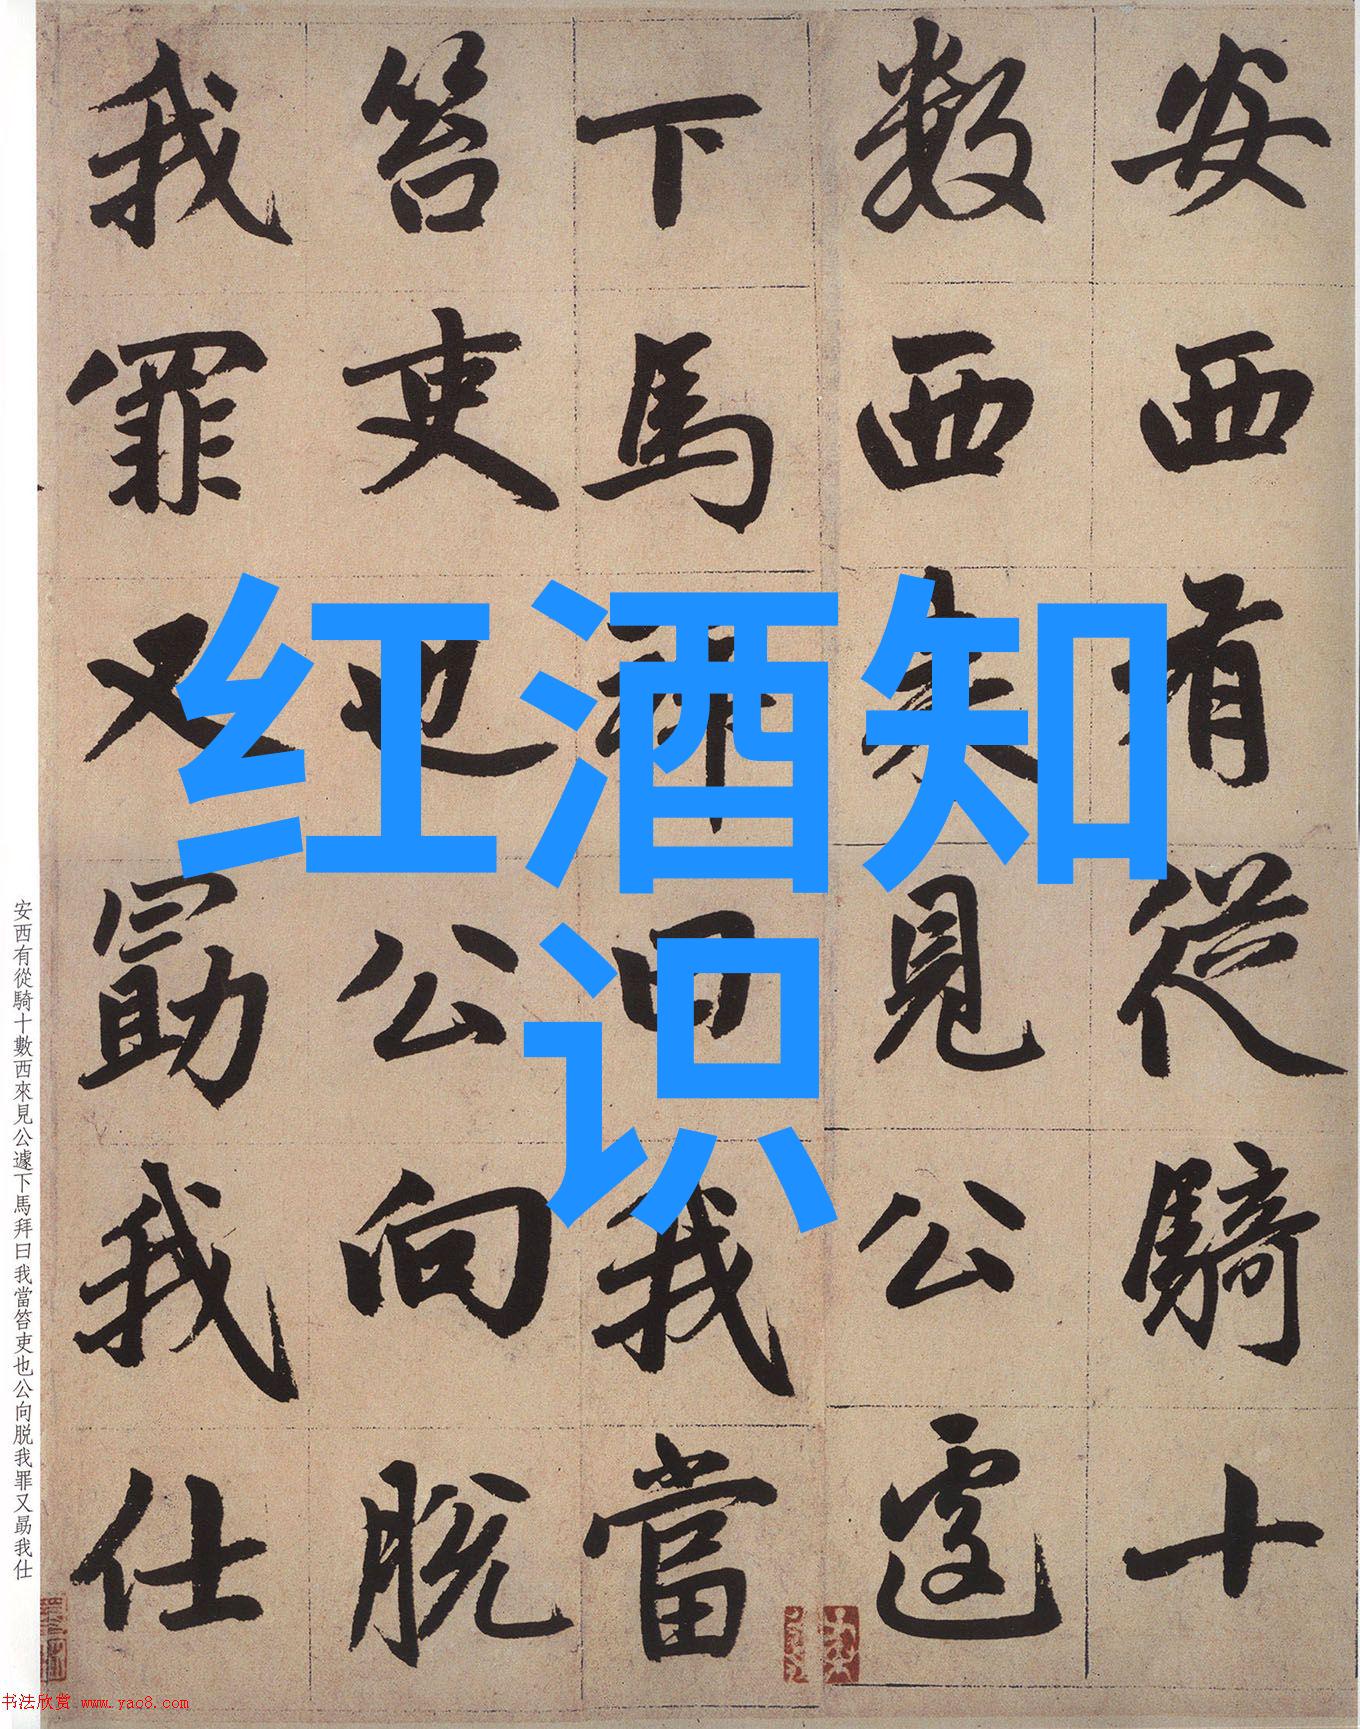 安西有從騎十
數西来見公遽
下馬拜曰我當
笞吏也公向脫
我罪又勗我仕
红酒知
识
安西有從騎十數西來見公遽下馬拜曰我當笞吏也公向脫我罪又勗我仕
书法欣赏 www.yac8.com